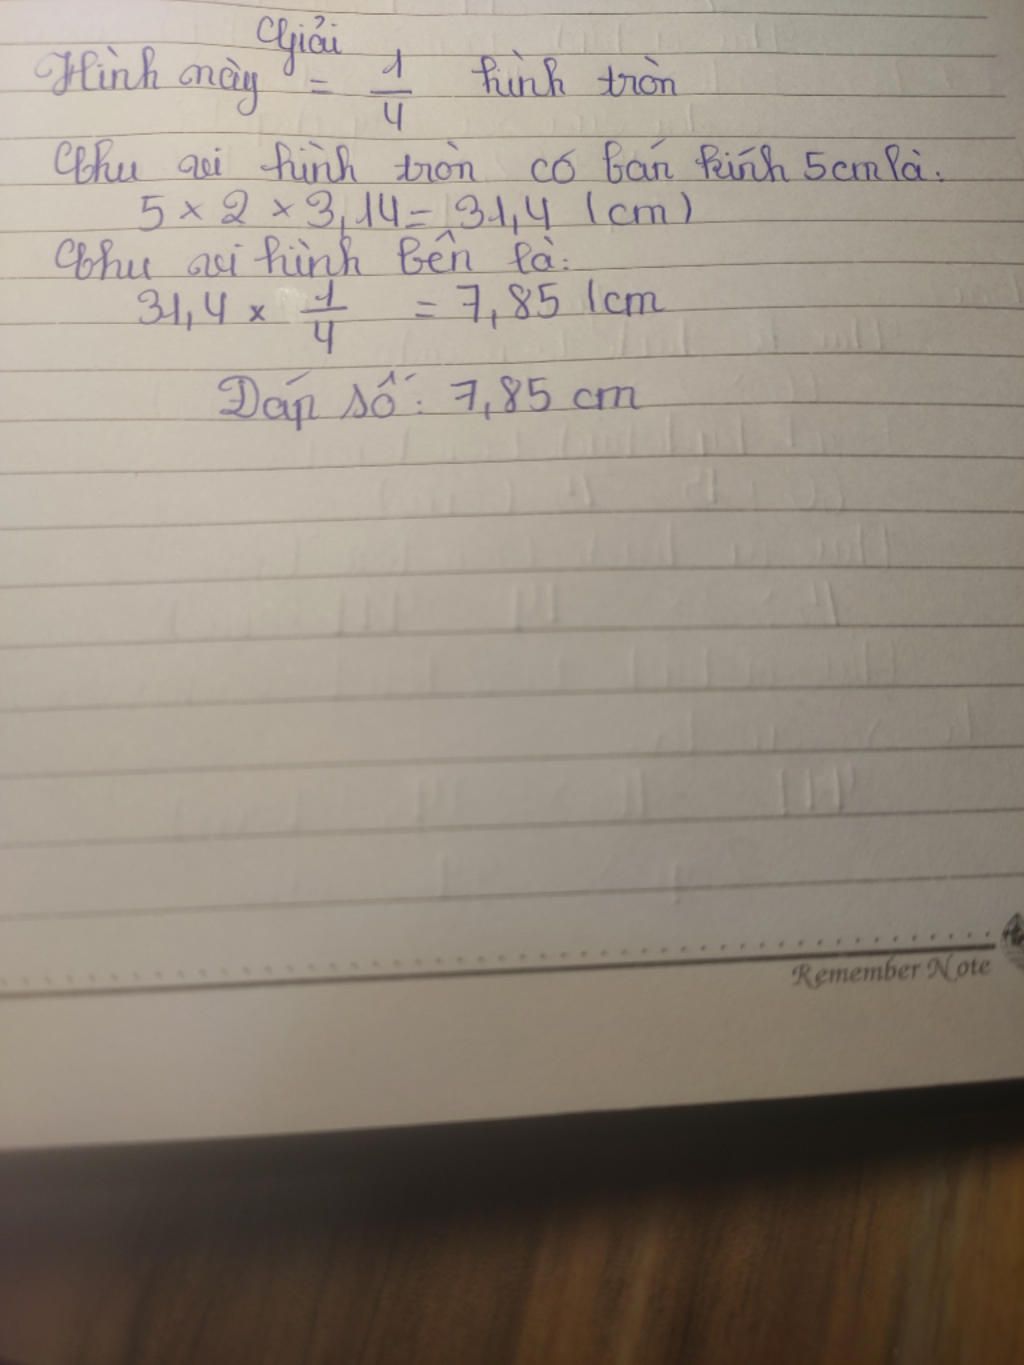 Giải
Hình này = 1/4 hình tròn
Chu vi hình tròn có bán kính 5cm là:
5 × 2 × 3,14 = 31,4 (cm)
Chu vi hình bên là:
31,4 × 1/4 = 7,85 (cm
Đáp số: 7,85 cm
Remember Note